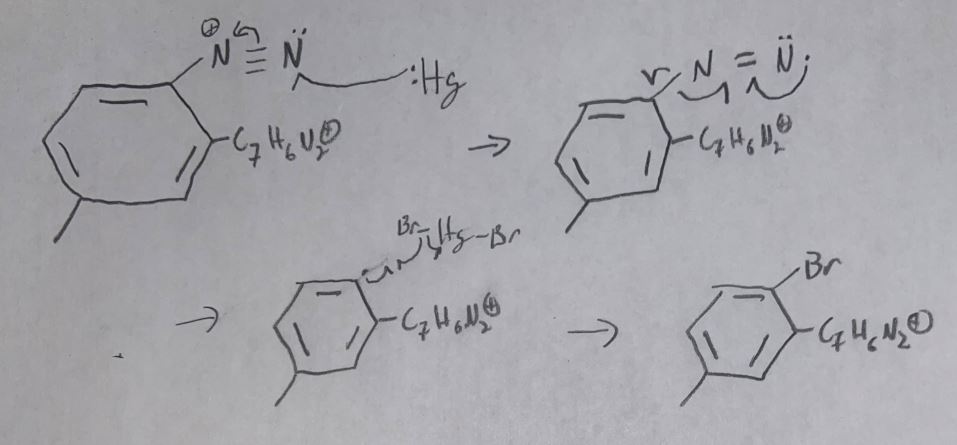 ⊕ N ≡ N̈ :Hg
C₇H₆N₂⊕
N = N̈·
C₇H₆N₂⊕
Br–Hg–Br
C₇H₆N₂⊕
Br
C₇H₆N₂⊕